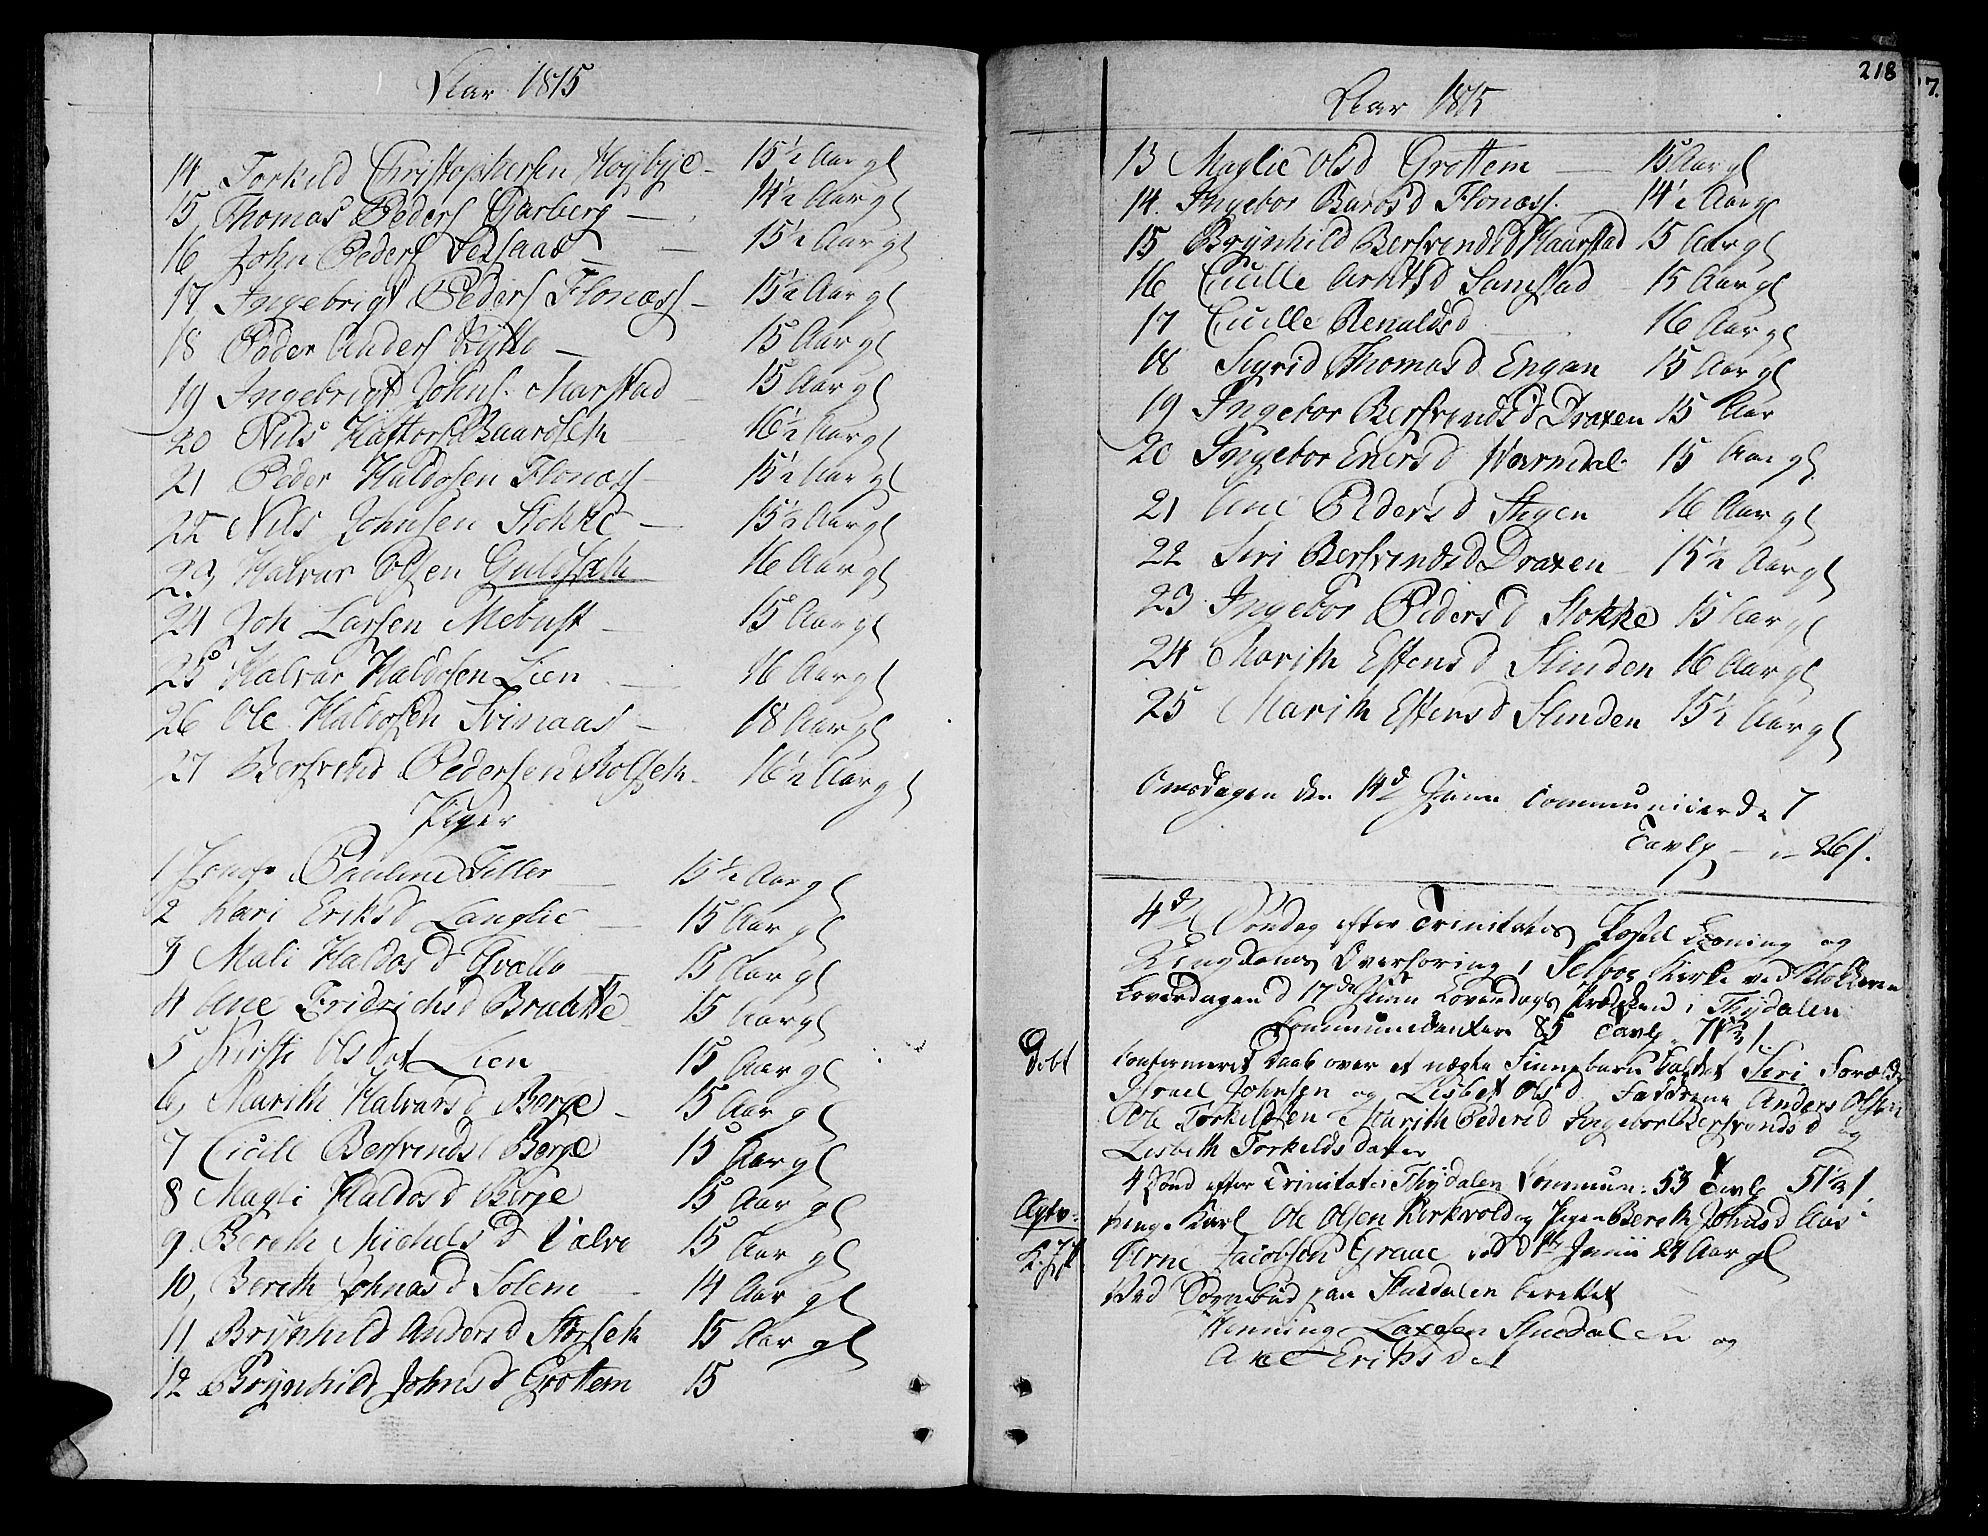 Aar 1815
14 Torkild Christophersen Høybye - 15½ Aar gl
15 Thomas Peders Garberg - 14½ Aar gl
16 John Peders - 15½ Aar gl
17 Ingebrigt Peders Flonæss - 15½ Aar gl
18 Peder Anders Kyllo - 15 Aar gl
19 Ingebrigt Johns. Marstad - 15 Aar gl
20 Nils Baardseth 16½ Aar gl
21 Peder Haldosen Flonæss - 15½ Aar gl
22 Nils Johnsen Stokke - 15½ Aar gl
23 Halvar Olsen Gulseth 16 Aar gl
24 Joh Larsen Mebust - 15 Aar gl
25 Halvar Haldosen Lien - 16 Aar gl
26 Ole Haldosen Svinaas - 18 Aar gl
27 Bersvend Pedersen Rolseth - 16½ Aar gl
Piger
1 Pauline Tiller - 15½ Aar gl
2 Kari Eriksd Langlie - 15 Aar gl
3 Mali Haldosd - 15 Aar gl
4 Ane Fridrichsd 15 Aar gl
5 Kirsti Olsdot Lien - 15 Aar gl
6 Marith Halvarsd Berge - 15 Aar gl
7 Cicill Bersvends Berge 15 Aar gl
8 Magli Haldosd Berge 15 Aar gl
9 Bereth Michelsd 15 Aar gl
10 Bereth Johnsd Solem - 14 Aar gl
11 Brynhild Andersd Storseth 15 Aar gl
12 Brynhild Johnsd Grottem 15
218
7.
Aar 1815
13 Maglie Olsd Grottem - 15 Aar gl
14. Ingebor Barosd Flonæss. 14½ Aar gl
15 Brynhild Bersvendsd Haarstad 15 Aar gl
16 Cicille Arntsd Samstad 15 Aar gl
17 Cicille Renaldsd - 16 Aar gl
18 Sigrid Thomasd Engan 15 Aar gl
19 Ingebor Bersvendsd Draxen 15 Aar
20 Ingebor Enersd Warmdal 15 Aar gl
21 Ane Pedersd Stigen 16 Aar gl
22 Siri Bersvendsd Draxen 15½ Aar gl
23 Ingebor Pedersd Stokke 15 Aar gl
24 Marith Estensd Slinden 16 Aar gl
25 Marith Estensd Slinden 15½ Aar gl
Onsdagen den 14d Junii Communicerede 7
Tavlp - 261.
4d Søndag efter Trinitatis og
Overhøring i Selboe Kirke ved Klokkeren
Løverdagen d 17de Juni Løverdags Prædiken i Thydalen
Communicanter 85 Tavlp.
Døbt
Confirmeret Daab over et ægte Pigebarn kaldet Siri Foræld:
Israel Johnsen og Lisbet Olsd Faddrene Anders Olsen
Ole Torkildsen Marith Pedersd Ingebor Bersvendsd og
Lisbeth Torkeldsdatter
4 Sønd efter Trinitatis Thydalen Commun: 53 Tavlp 51½
Unge Karl Ole Olsen Kirkvold og Pigen Bereth Johnsd Aas
Arne Jacobsen Graae Junii 24 Aar gl
Ved Sognebud paa Stuedalen berettet
Henning Laxesen Stuedalen og
Ane Eriksdat